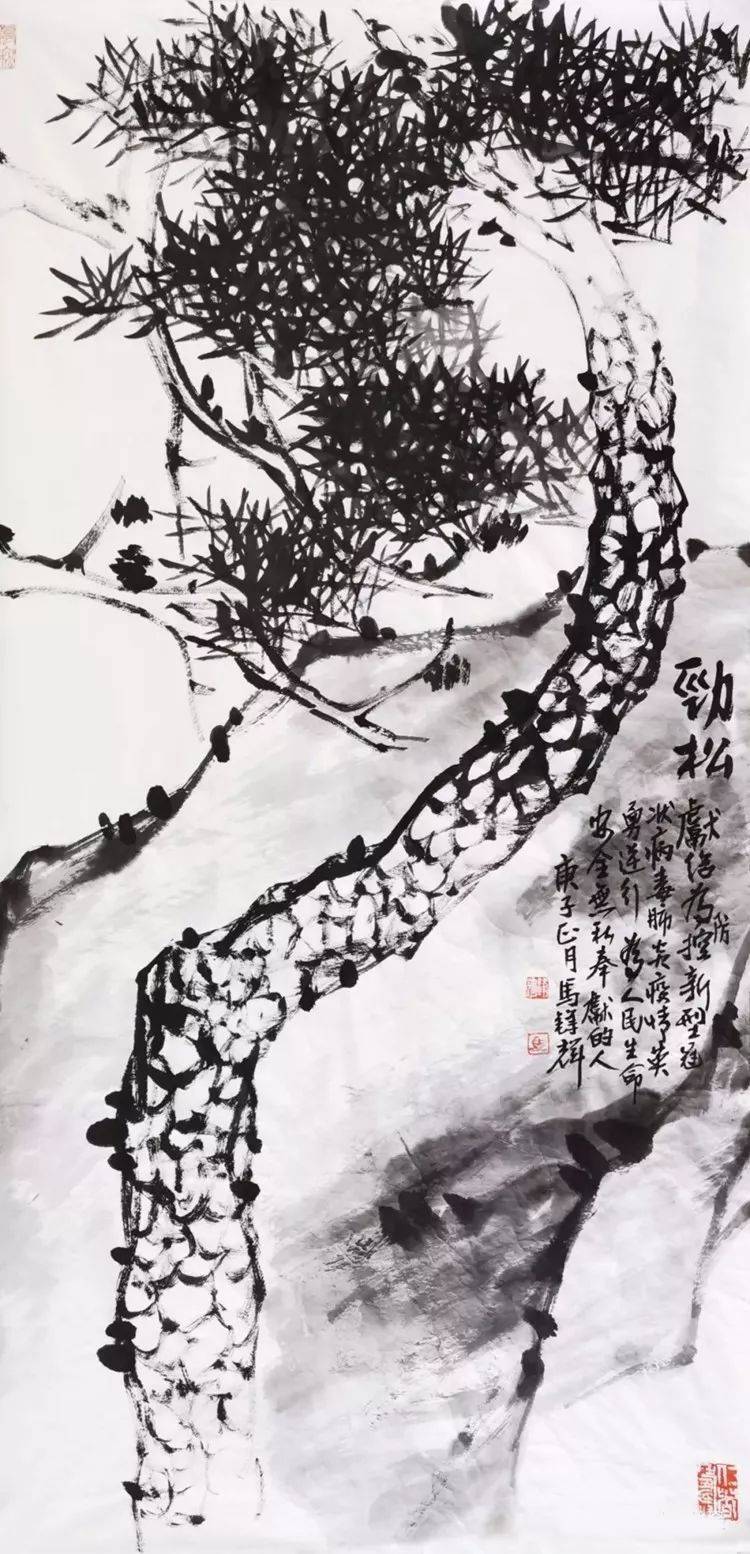 勁松
獻给为防控新型冠
状病毒肺炎疫情英
勇逆行為人民生命
安全無私奉獻的人
庚子正月馬鋒辉